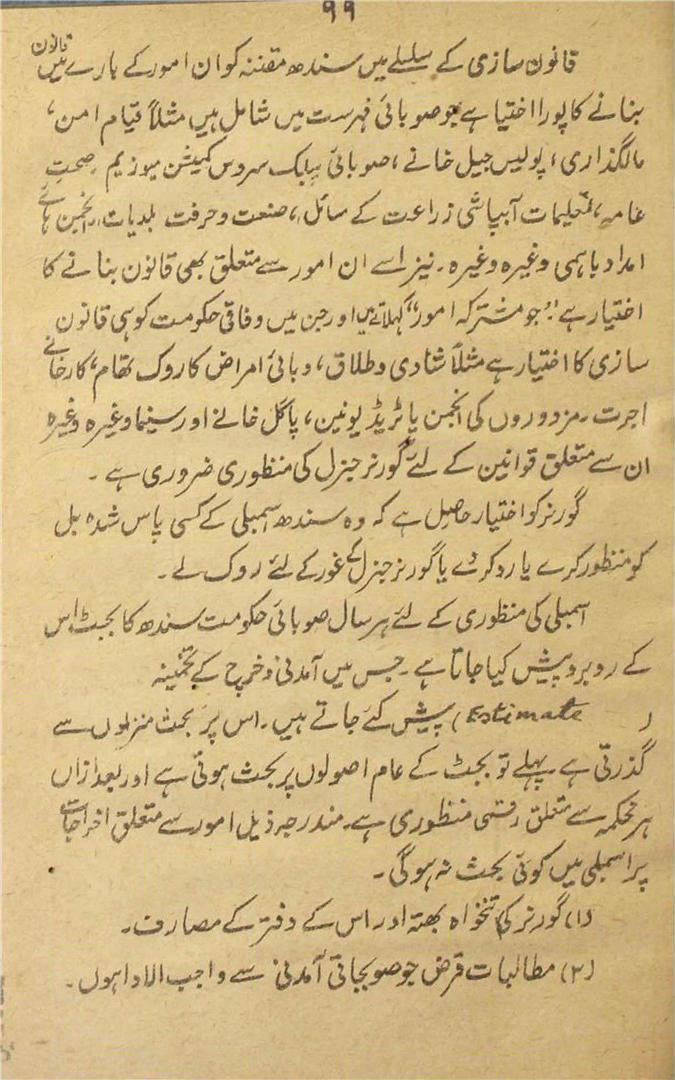 ۹۹
قانون سازی کے سلسلے میں سندھ مقننہ کو ان امور کے بارے میں قانون
بنانے کا پورا اختیا ہے جو صوبائی فہرست میں شامل ہیں مثلاً قیام امن،
مالگذاری، پولیس جیل خانے، صوبائی پبلک سروس کمیشن میوزیم۔ صحتِ
عامہ، تعلیمات آبپاشی زراعت کے سائل، صنعت و حرفت بلدیات۔ انجمن ہائے
امداد باہمی وغیرہ وغیرہ۔ نیز اسے ان امور سے متعلق بھی قانون بنانے کا
اختیار ہے "جو مشترکہ امور" کہلاتے ہیں اور جن میں وفاقی حکومت کو ہی قانون
سازی کا اختیار ہے مثلاً شادی و طلاق، وبائی امراض کا روک تھام، کارخانے
اجرت۔ مزدوروں کی انجمن یا ٹریڈ یونین، پاگل خانے اور سینما وغیرہ وغیرہ
ان سے متعلق قوانین کے لئے گورنر جنرل کی منظوری ضروری ہے۔
گورنر کو اختیار حاصل ہے کہ وہ سندھ اسمبلی کے کسی پاس شدہ بل
کو منظور کرے یا رد کر دے یا گورنر جنرل کے غور کے لئے روک لے۔
اسمبلی کی منظوری کے لئے ہر سال صوبائی حکومت سندھ کا بجٹ اس
کے روبرو پیش کیا جاتا ہے۔ جس میں آمدنی و خرچ کے تخمینہ
(Estimate) پیش کئے جاتے ہیں۔ اس پر بحث منزلوں سے
گذرتی ہے۔ پہلے تو بجٹ کے عام اصولوں پر بحث ہوتی ہے اور بعد ازاں
ہر محکمہ سے متعلق رقمی منظوری ہے۔ مندرجہ ذیل امور سے متعلق اخراجات
پر اسمبلی میں کوئی بحث نہ ہو گی۔
(۱) گورنر کی تنخواہ بھتہ اور اس کے دفتر کے مصارف۔
(۲) مطالبات قرض جو صوبجاتی آمدنی سے واجب الادا ہوں۔